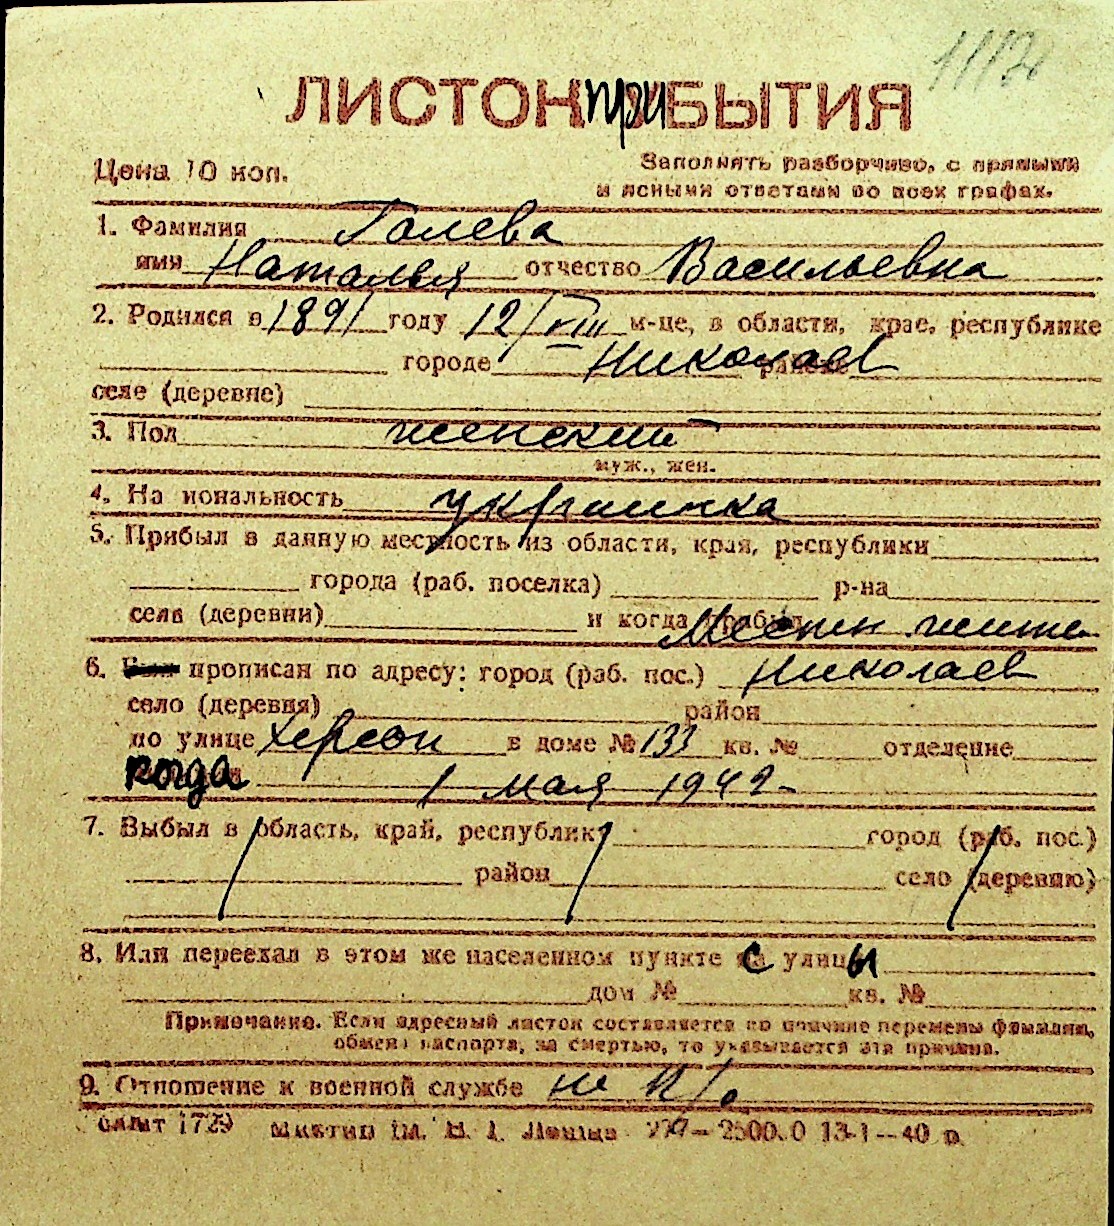 ЛИСТОК ПРИБЫТИЯ
Цена 10 коп.
Заполнять разборчиво, с прямыми
и ясными ответами во всех графах.
1. Фамилия Галева
имя Наталья отчество Васильевна
2. Родился в 1891 году 12/VIII м-це, в области, крае, республике
городе Николаев
селе (деревне)
3. Пол женский
муж., жен.
4. На иональность украинка
5. Прибыл в данную местность из области, края, республики
города (раб. поселка) р-на
села (деревни) и когда прибыл Местн. жит.
6. прописан по адресу: город (раб. пос.) Николаев
село (деревня) район
по улице Херсон в доме № 133 кв. № отделение
когда 1 мая 1942
7. Выбыл в область, край, республик город (раб. пос.)
район село (деревню)
8. Или переехал в этом же населенном пункте с улицы
дом № кв. №
Примечание. Если адресный листок составляется по причине перемены фамилии,
обмена паспорта, за смертью, то указывается эта причина.
9. Отношение к военной службе не
1729 ім. В. І. Леніна 13-1--40 р.